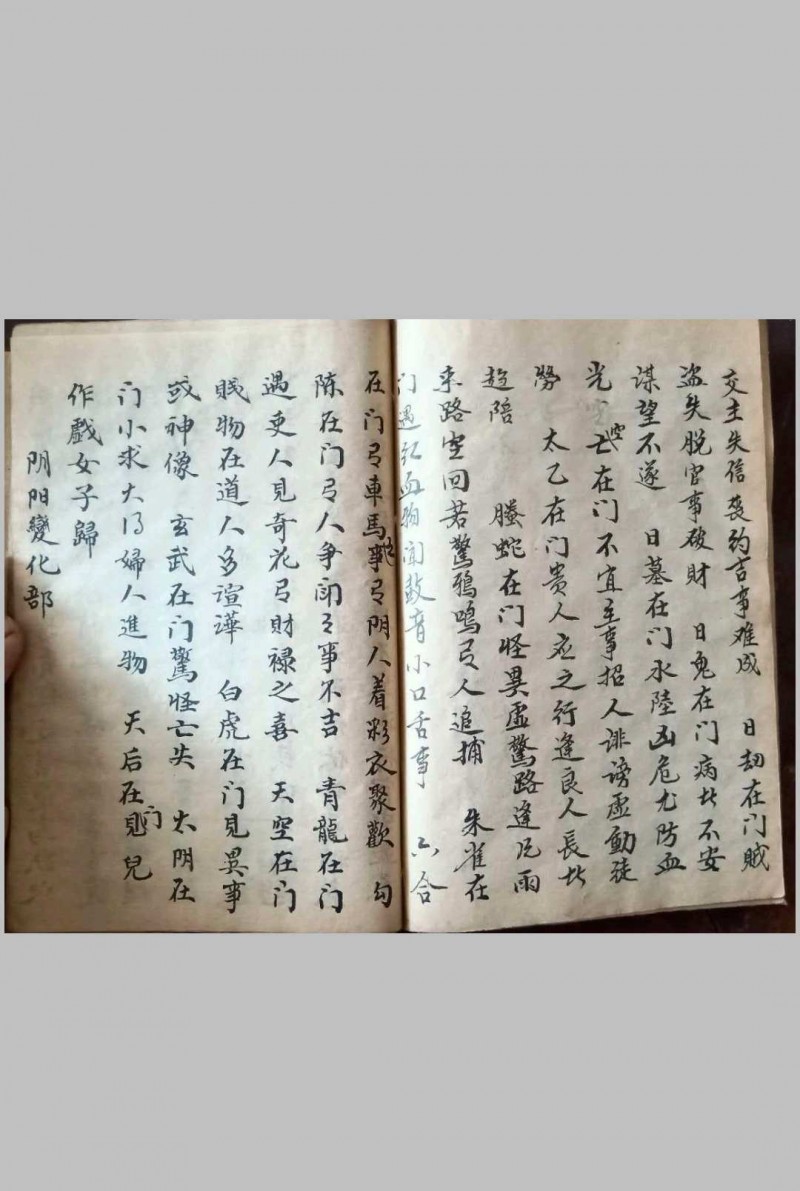 交主失信丧约吉事难成　日劫在门贼
盗失脱官事破财　日鬼在门病地不安
谋望不遂　日墓在门水陆凶危尤防血
光　空亡在门不宜主事招人诽谤虚動徒
勞　太乙在门贵人應之行逢良人長壮
趋陪　螣蛇在门怪異虚驚路逢风雨
来路空回若驚鴉鳴弓人追捕　朱雀在
门遇红血物闻鼓音小口舌事　六合
在门弓車馬事弓阴人着彩衣聚歡　勾
陳在门弓人争闹之事不吉　青龍在门
遇吏人見奇花弓财禄之喜　天空在门
贱物在道人多諠譁　白虎在门見異事
或神像　玄武在门驚怪亡失　太阴在
门小求大得婦人進物　天后在门見兒
作戲女子歸
阴阳變化部